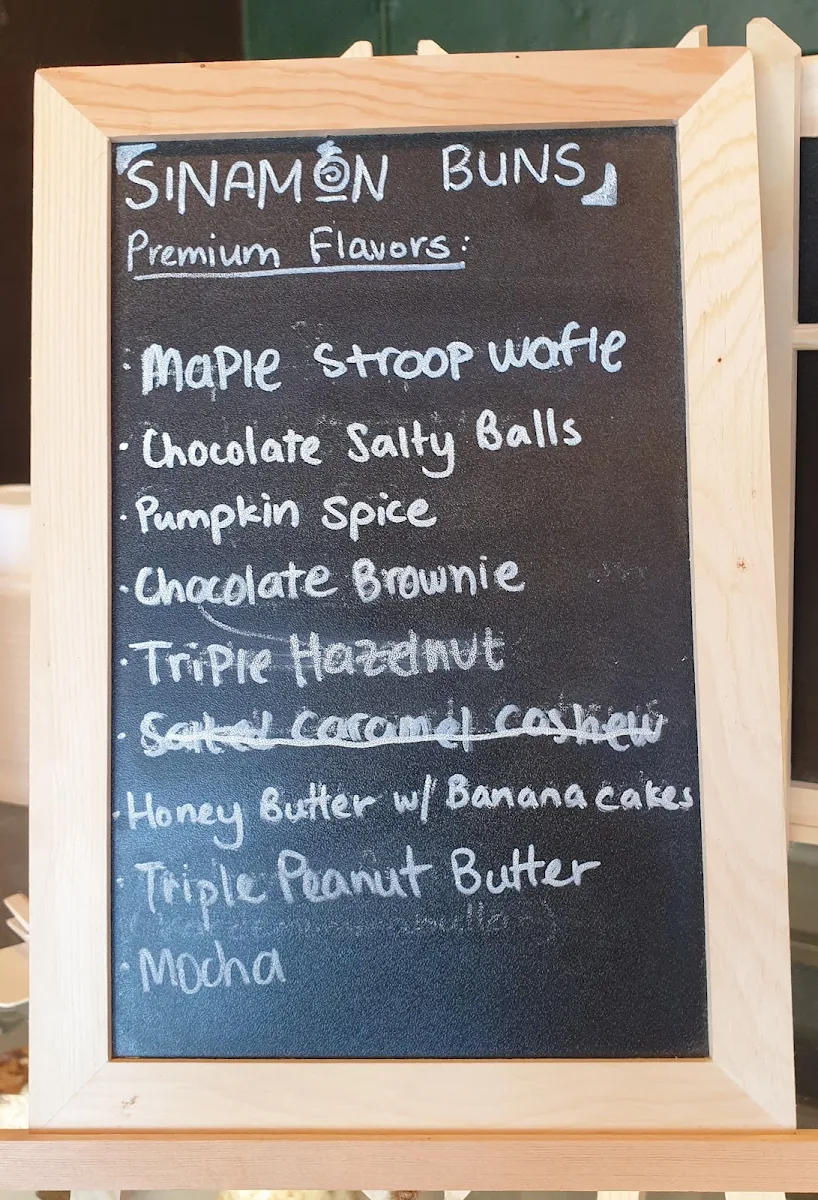 SINAMON BUNS
Premium Flavors:
· Maple Stroop wafle
· Chocolate Salty Balls
· Pumpkin Spice
· Chocolate Brownie
· Triple Hazelnut
· Salted Caramel Cashew
· Honey Butter w/ Banana cakes
· Triple Peanut Butter
· Mocha